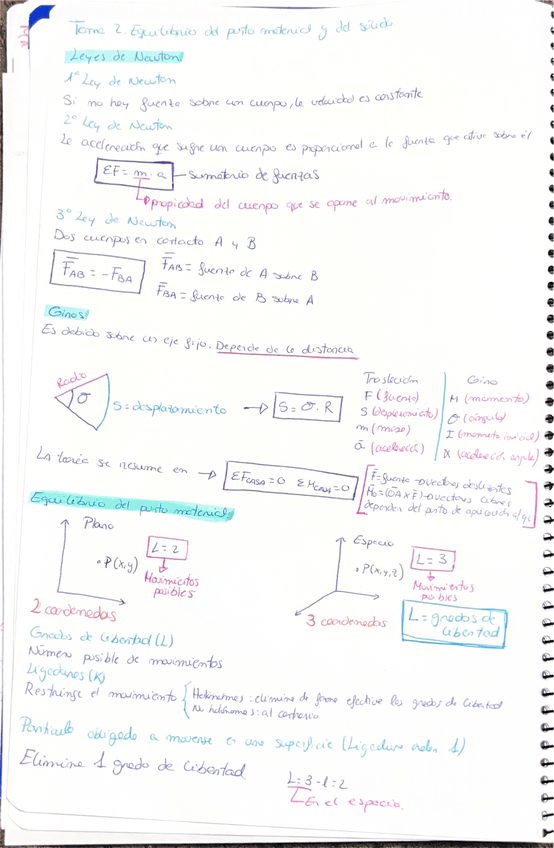 Tema 2. Equilibrio del punto material y del sólido
Leyes de Newton
1ª Ley de Newton
Si no hay fuerza sobre un cuerpo, la velocidad es constante
2ª Ley de Newton
La aceleración que sufre un cuerpo es proporcional a la fuerza que actúe sobre él
ΣF = m · a — sumatorio de fuerzas
propiedad del cuerpo que se opone al movimiento.
3ª Ley de Newton
Dos cuerpos en contacto A y B
F̅AB = -F̅BA
F̅AB = fuerza de A sobre B
F̅BA = fuerza de B sobre A
Giros
Es debido sobre un eje fijo. Depende de la distancia
Radio
σ
S = desplazamiento → S = σ · R
Traslación
F (fuerza)
S (desplazamiento)
m (masa)
a̅ (aceleració)
Giro
M (momento)
σ (ángulo)
I (momento inicial)
α (aceleració angular)
La teoría se resume en → ΣFCASA=0 ΣMCAM=0
F̅=fuerza → vectores deslizantes
M̅o=(OA x F̅) → vectores libres
dependen del punto de aplicación
Equilibrio del punto material
Plano
P(x,y)
L = 2
Movimientos posibles
2 coordenadas
Espacio
P(x,y,z)
L = 3
Movimientos posibles
3 coordenadas
L = grados de libertad
Grados de libertad (L)
Número posible de movimientos
Ligaduras (K)
Restringe el movimiento
Holónomas: elimina de forma efectiva los grados de libertad
No holónomas: al contrario
Partícula obligada a moverse en una superficie (Ligadura orden 1)
Elimina 1 grado de libertad.
L = 3 - 1 = 2
En el espacio.